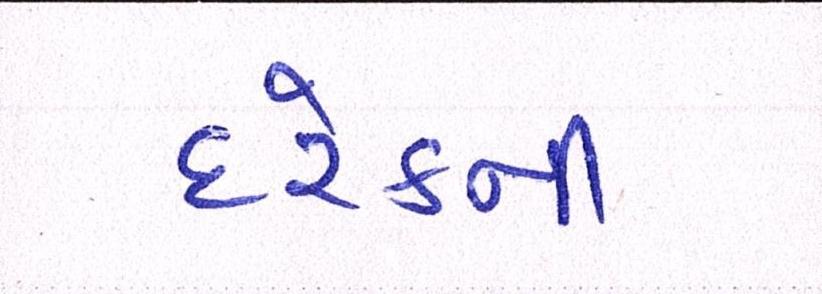 દરેકની